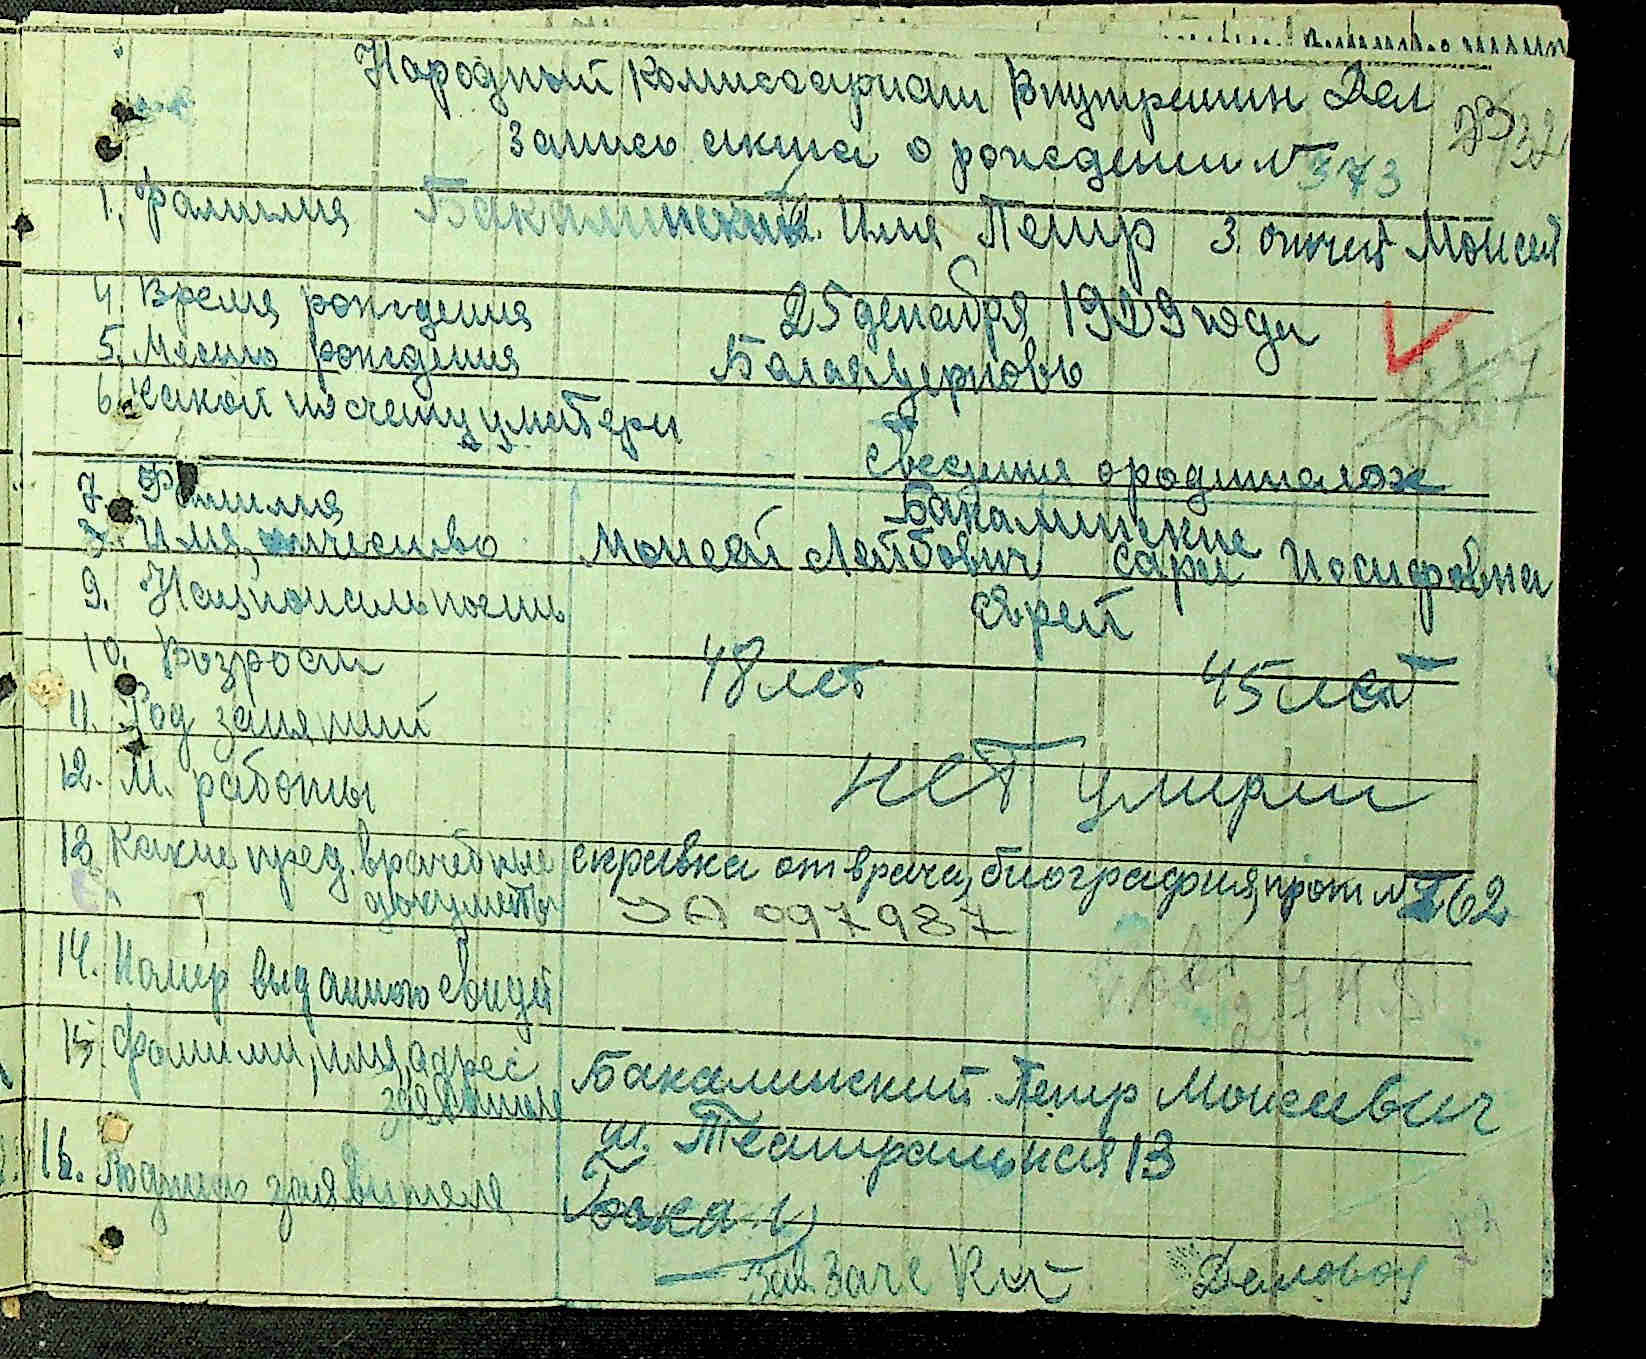 Народный Комиссариат Внутренин Дел
Запись акта о рождении № 373
1. Фамилия Бакалинский 2. Имя Петр 3. отчест Моисей
4. Время рождения 25 декабря 1909 года
5. Место рождения Балаяцерковь
6. Какой по счету у матери
Сведения о родителях
7. Фамилия Бакалинские
8. Имя, отчество Моисей Лейбович Сара Иосифовна
9. Национальность еврей
10. Возраст 48 лет 45 лет
11. Род занятий
12. М. работы нет умерли
13 Какие пред. врачебные документы справка от врача, биография, прот № 162
ЭА 097987
14. Номер выданного свидет
15. Фамилия, имя, адрес заявителя Бакалинский Петр Моисеевич
ул. Театральная 13
16. Подпись заявителя Бака
Зав.